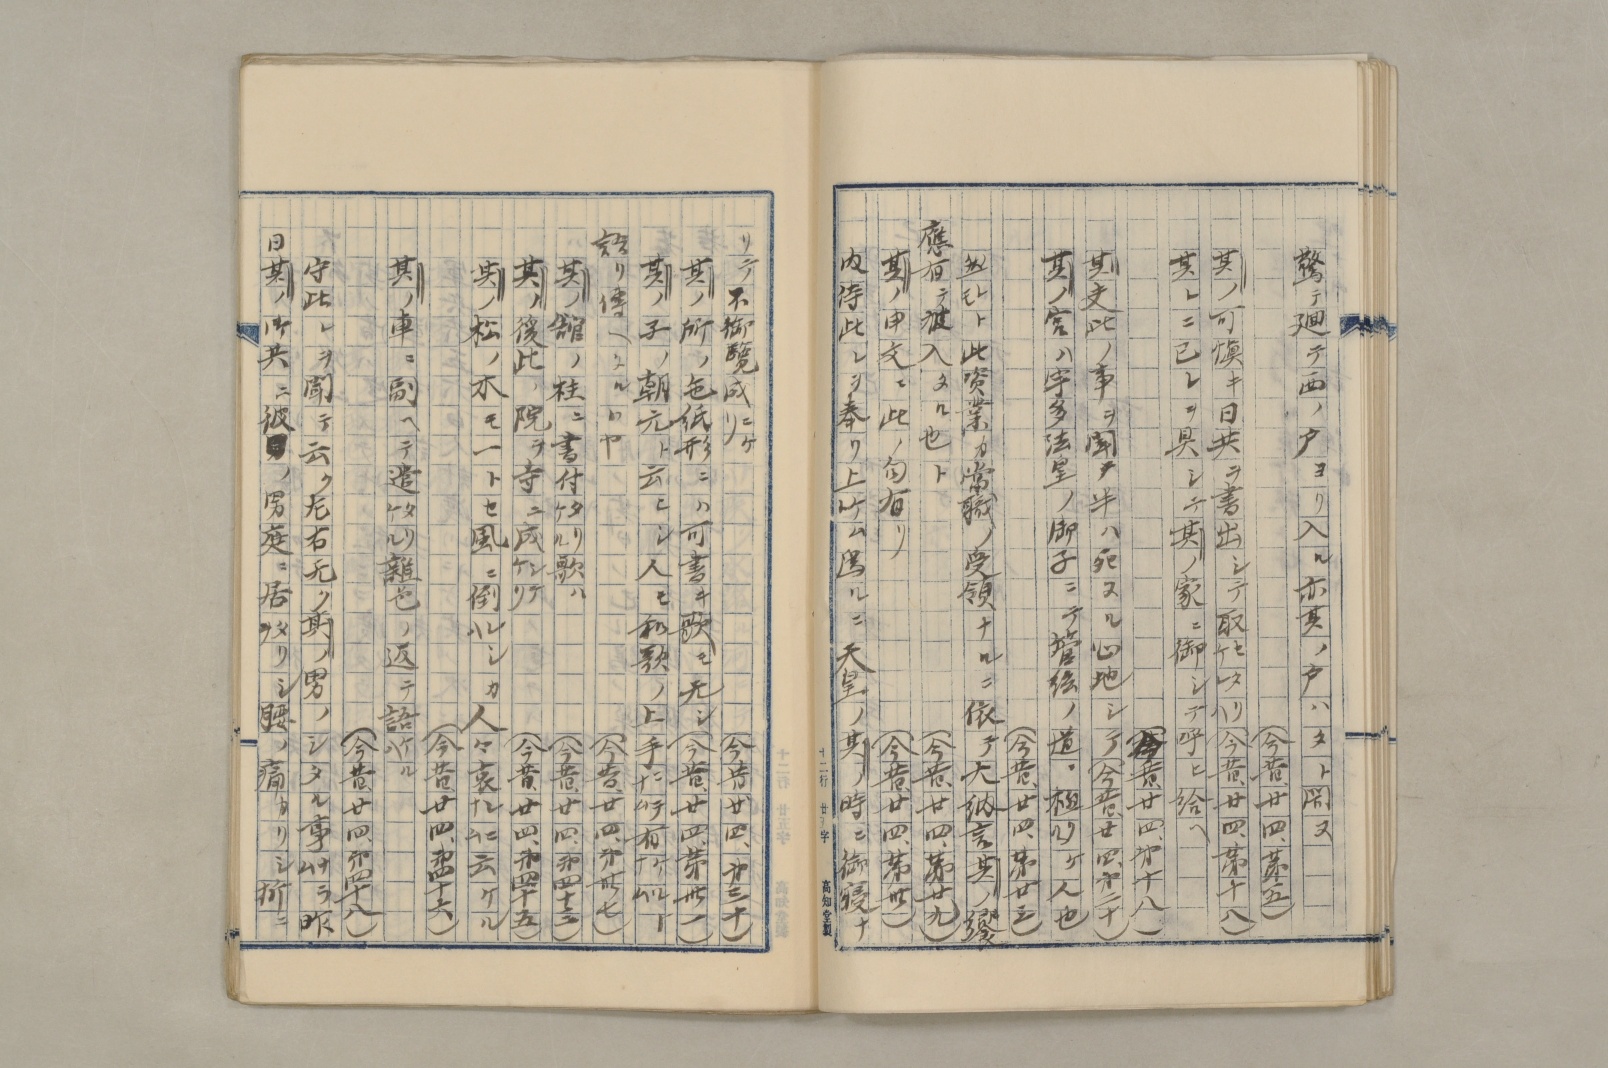 驚テ廻テ西ノ戸ヨリ入ル亦其ノ戸ハタト閇ヌ
(今昔、廿四、第五)
其ノ可慎キ日共ヲ書出シテ取セケレハ
(今昔、廿四、第十八)
其レニ己レヲ具シテ其ノ家ニ御シテ呼ヒ給ヘ
(今昔、廿四、第十八)
其文此ノ事ヲ聞テ半ハ死ヌル心地シテ
(今昔、廿四、第二十)
其ノ宮ハ宇多法皇ノ御子ニテ管絃ノ道。極リケル人也
(今昔、廿四、第廿三)
然レトモ此資業カ當職ノ受領ナルニ依テ大納言其ノ饗
應有テ被入タル也ト
(今昔、廿四、第廿九)
其ノ申文ニ此ノ句有リ
(今昔、廿四、第卅)
内侍此レヲ奉リ上ケム為ルニ天皇ノ其ノ時ニ御寝ナ
リテ不御覧成リニケリ
(今昔、廿四、第三十)
其ノ所ノ色紙形ニハ可書キ歌モ无シ
(今昔、廿四、第卅一)
其ノ子ノ朝元ト云ヒシ人モ和歌ノ上手ニテナム有ケルトナム
語リ傳ヘタルトヤ
(今昔、廿四、第卅七)
其ノ館ノ柱ニ書付タリケル歌ハ
(今昔、廿四、第四十二)
其ノ後此ノ院ヲ寺ニ成シケリ
(今昔、廿四、第四十五)
其ノ松ノ木モ一トセ風ニ倒レシカハ人々哀ナムトニ云ケル
(今昔、廿四、第四十六)
其ノ車ニ副ヘテ遣タリケル雑色ノ返テ語ケルハ
(今昔、廿四、第四十八)
守此レヲ聞テ云ク左右无ク其ノ男ノシタル事ナラム昨
日其ノ御共ニ彼ノ男庭ニ居タリシ腰ノ痛カリシ折ニ
十二行 廿五字 高知堂製